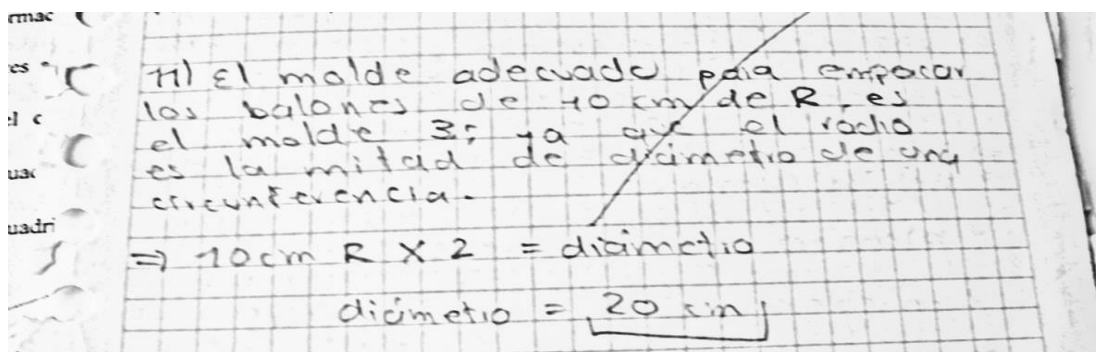 rmac
es
11) El molde adecuado para empacar
los balones de 10 cm de R, es
el molde 3; ya que el radio
es la mitad de diámetro de una
circunferencia.
uadri
=> 10cm R X 2 = diámetro
diámetro = 20 cm